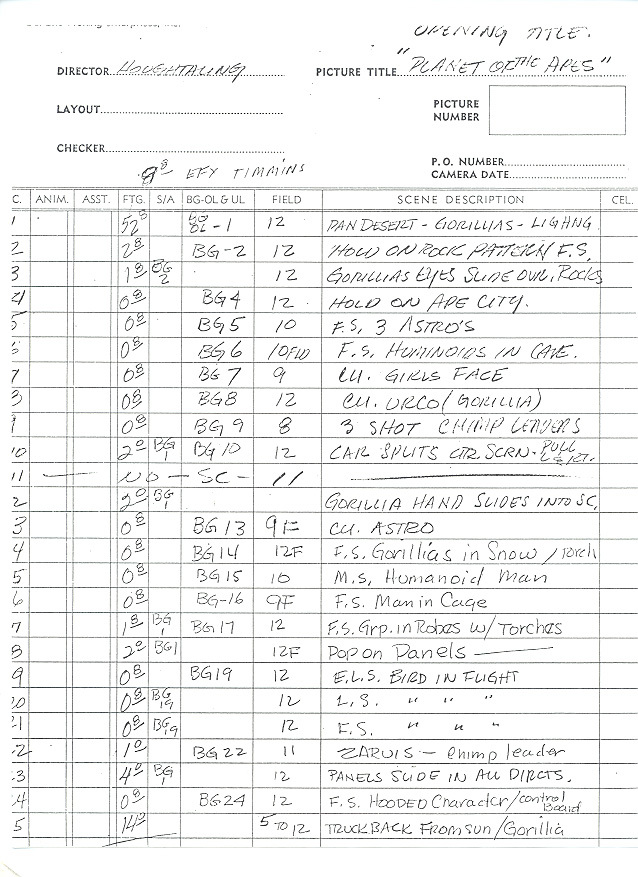 OPENING TITLE.
DIRECTOR HOUGHTALING PICTURE TITLE "PLANET OF THE APES"
LAYOUT
PICTURE NUMBER
CHECKER
P.O. NUMBER
CAMERA DATE
EFX TIMMINS
C. ANIM. ASST. FTG. S/A BG-OL & UL FIELD SCENE DESCRIPTION CEL.
1 52⁸ OL-1 12 PAN DESERT - GORILLIAS - LIGHNG
2 2⁸ BG-2 12 HOLD ON ROCK PATTERN F.S.
3 1⁸ BG 2 12 GORILLIAS EYES SLIDE OVR, ROCKS
4 0⁸ BG4 12 HOLD ON APE CITY.
5 0⁸ BG5 10 F.S. 3 ASTRO'S
6 0⁸ BG6 10FLD F.S. HUMINOIDS IN CAVE.
7 0⁸ BG7 9 CU. GIRLS FACE
8 0⁸ BG8 12 CU. URCO (GORILLIA)
9 0⁸ BG9 8 3 SHOT CHIMP LEADERS
10 2⁰ BG 1 BG10 12 CAR SPLITS CTR. SCRN.
11 — NO — SC — 11
2 2⁰ BG 1 GORILLIA HAND SLIDES INTO SC,
3 0⁸ BG13 9F CU. ASTRO
4 0⁸ BG14 12F F.S. Gorillias in Snow / Torch
5 0⁸ BG15 10 M.S, Humanoid Man
6 0⁸ BG-16 9F F.S. Man in Cage
7 1⁸ BG 1 BG17 12 F.S. Grp. in Robes w/ Torches
8 2⁰ BG1 12F Pop on Panels
9 0⁸ BG19 12 E.L.S. BIRD IN FLIGHT
20 0⁸ BG 19 12 L.S. " " "
21 0⁸ BG 19 12 F.S. " " "
2 1⁰ BG22 11 ZARUIS - chimp leader
3 4⁰ BG 1 12 PANELS SLIDE IN ALL DIRCTS.
4 0⁸ BG24 12 F.S. HOODED Character/control Board
5 14⁰ 5 TO 12 TRUCK BACK FROM SUN/Gorillia